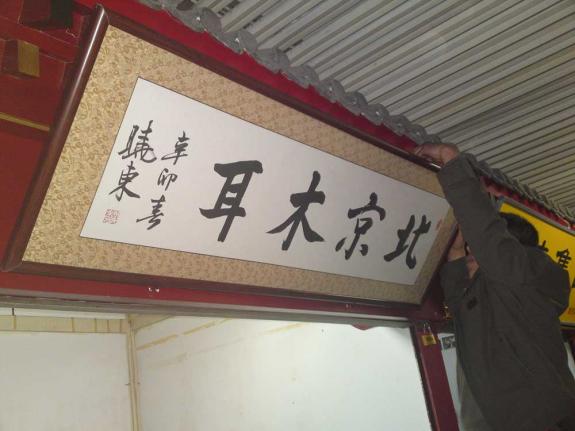 北京木耳
辛卯春
曉東